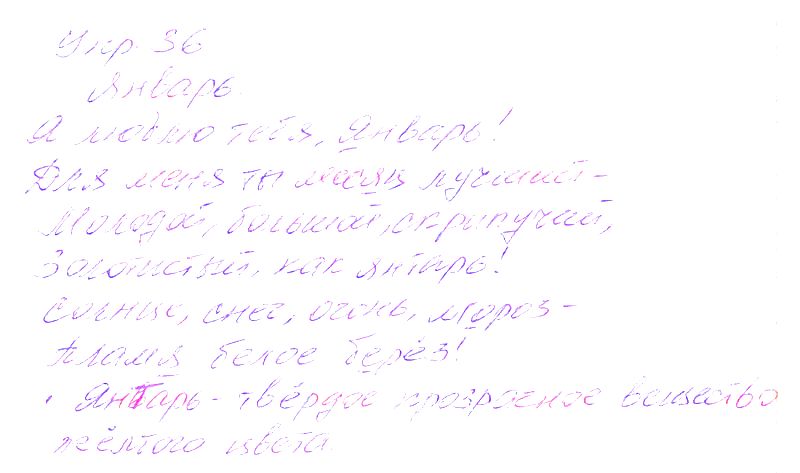 Упр 36
Январь.
Я люблю тебя, Январь!
Для меня ты месяц лучший-
Молодой, большой, скрипучий,
Золотистый, как янтарь!
Солнце, снег, огонь, мороз-
Пламя белое берёз!
Янтарь- твёрдое прозрочное вещество
жёлтого цвета.